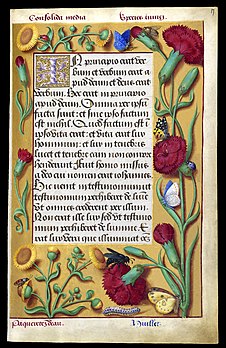 Consolida media
In principio erat ver
bum et verbum erat a
pud deum et deus erat
verbum Hoc erat in principio
apud deum Omnia per ipsum
facta sunt: et sine ipso factum
est nichil Quod factum est in
ipso vita erat: et vita erat lux
hominum: et lux in tenebris
lucet et tenebre eam non compre
henderunt fuit homo missus
a deo cui nomen erat iohannes
Hic venit in testimonium ut
testimonium perhiberet de lumine
ut omnes crederent per illum
Non erat ille lux sed ut testimo
nium perhiberet de lumine
erat lux vera que illuminat